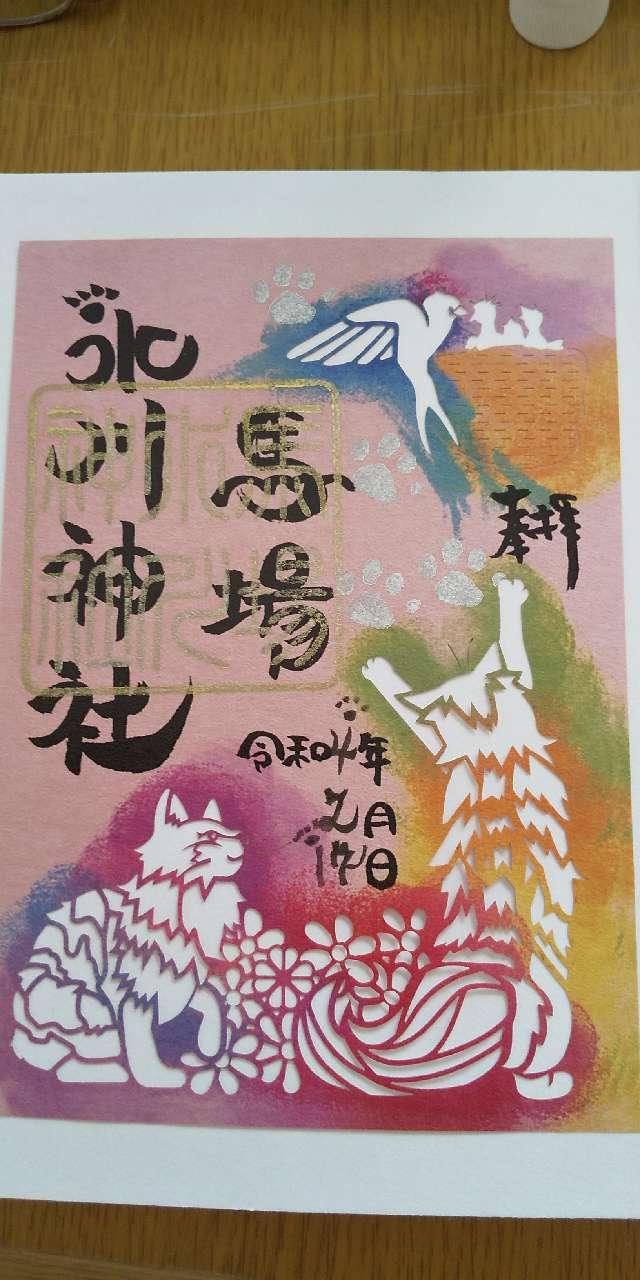 奉拝
馬場
氷川神社
令和4年
月
17日